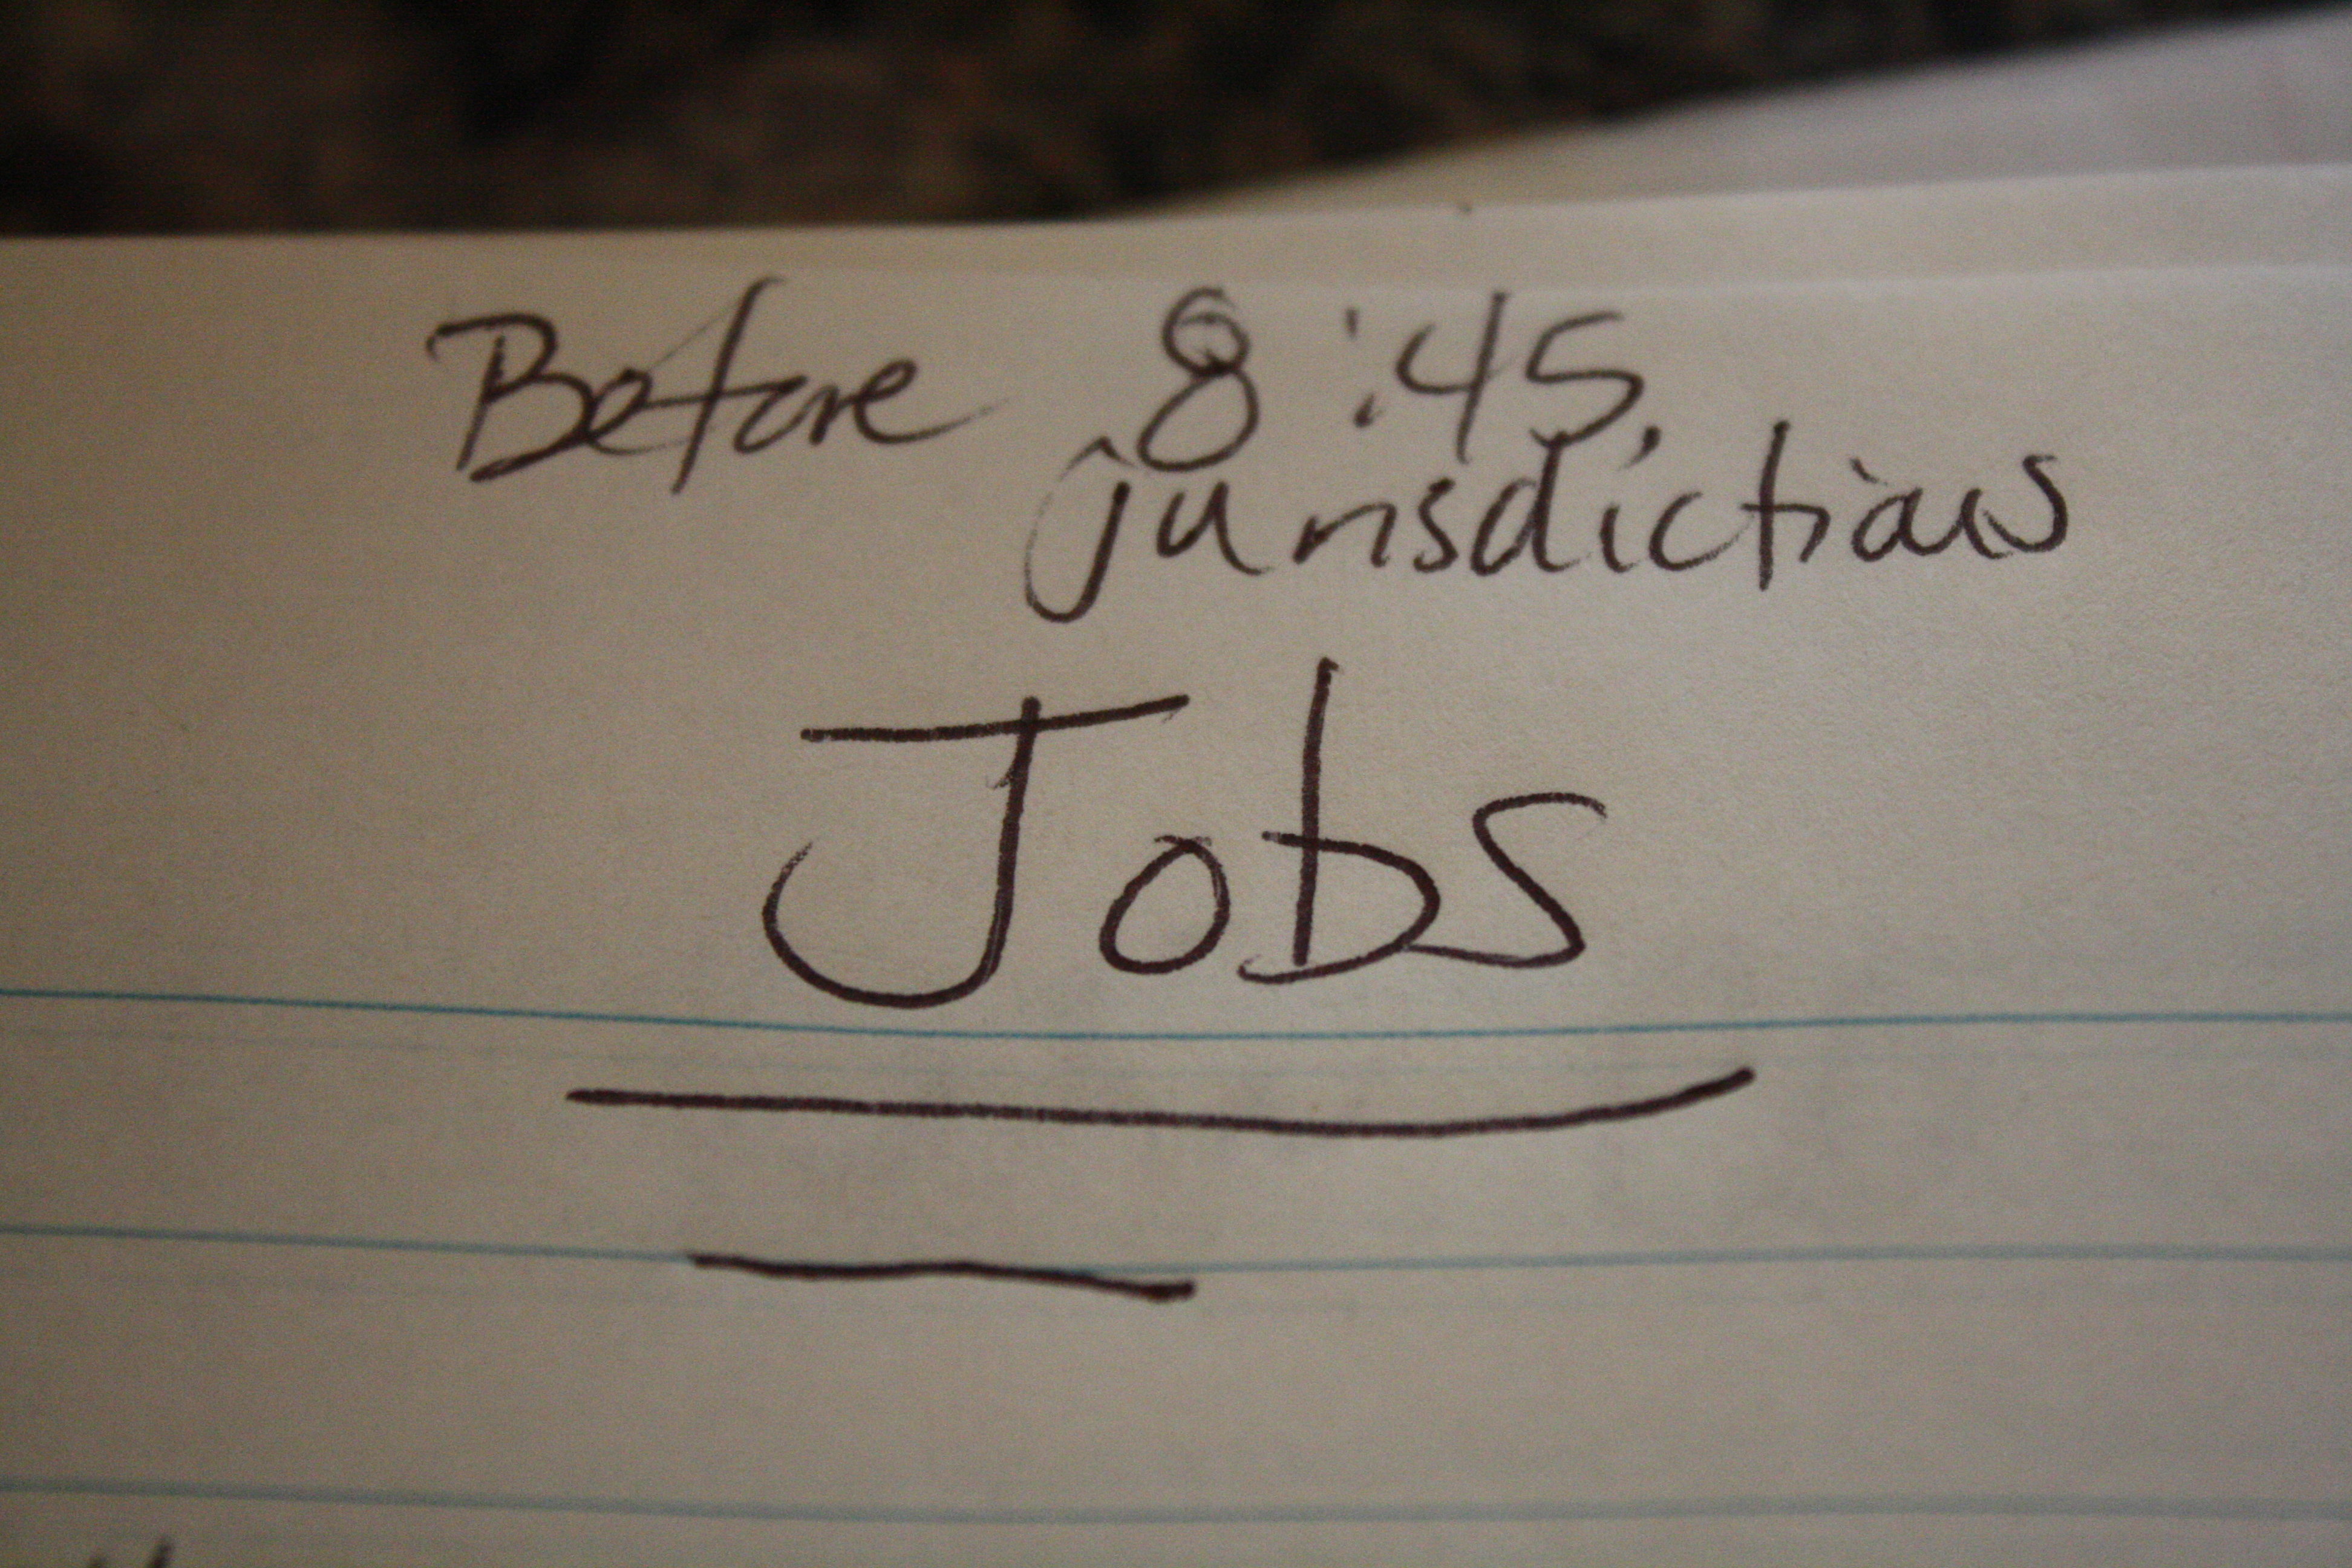 Before 8:45,
jurisdictions
Jobs